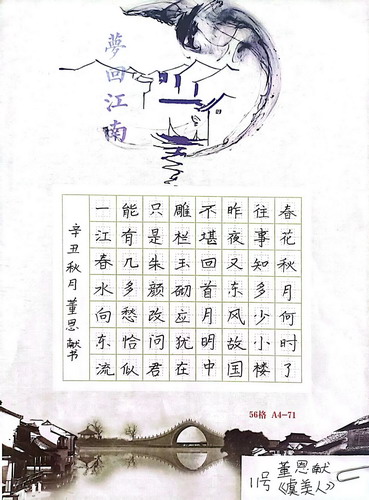 夢回江南
春花秋月何时了
往事知多少小楼
昨夜又东风故国
不堪回首月明中
雕栏玉砌应犹在
只是朱颜改问君
能有几多愁恰似
一江春水向东流
辛丑秋月 董恩献书
56格 A4-71
11号 董恩献
《虞美人》